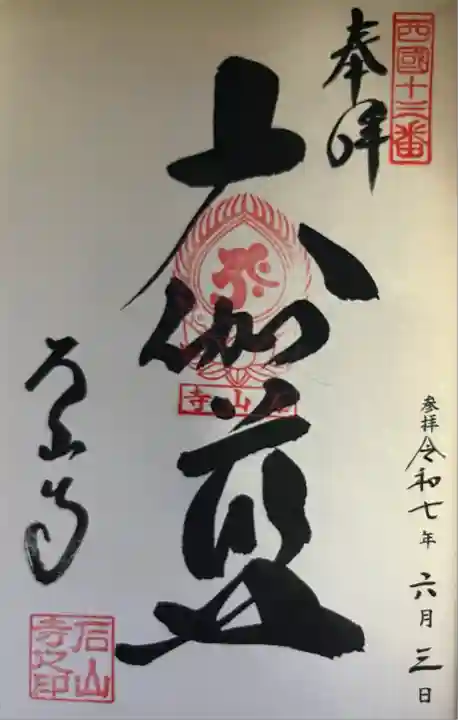 西國十三番
奉拝
参拝令和七年 六月三日
大伽藍
石山寺
石山寺
石山寺之印